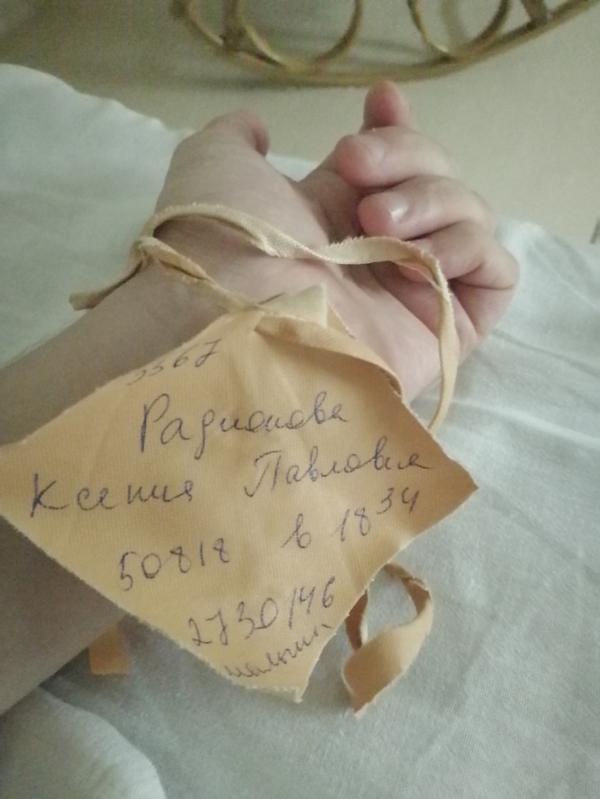 3367
Радионова
Ксения Павловна
50818 в 1834
2730/46
мальчик